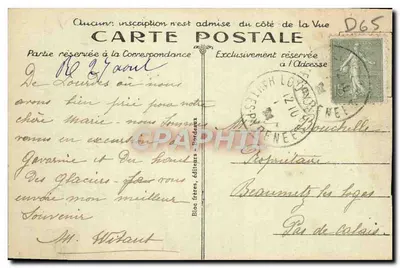 Aucune inscription n'est admise du côté de la Vue
D65
CARTE POSTALE
Partie réservée à la Correspondance
Exclusivement réservée
à l'Adresse
Re 27 août
De Lourdes où nous
avons bien prié pour notre
chère Marie - nous sommes
venus en excursion
Gavarnie et Du haut
Des Glaciers vous
envoie mon meilleur
Souvenir
M. Witaut
Bloc frères, éditeurs, Bordeaux
CPArama
M Bouchelle
Propriétaire
Beaumetz les loges
Pas de Calais